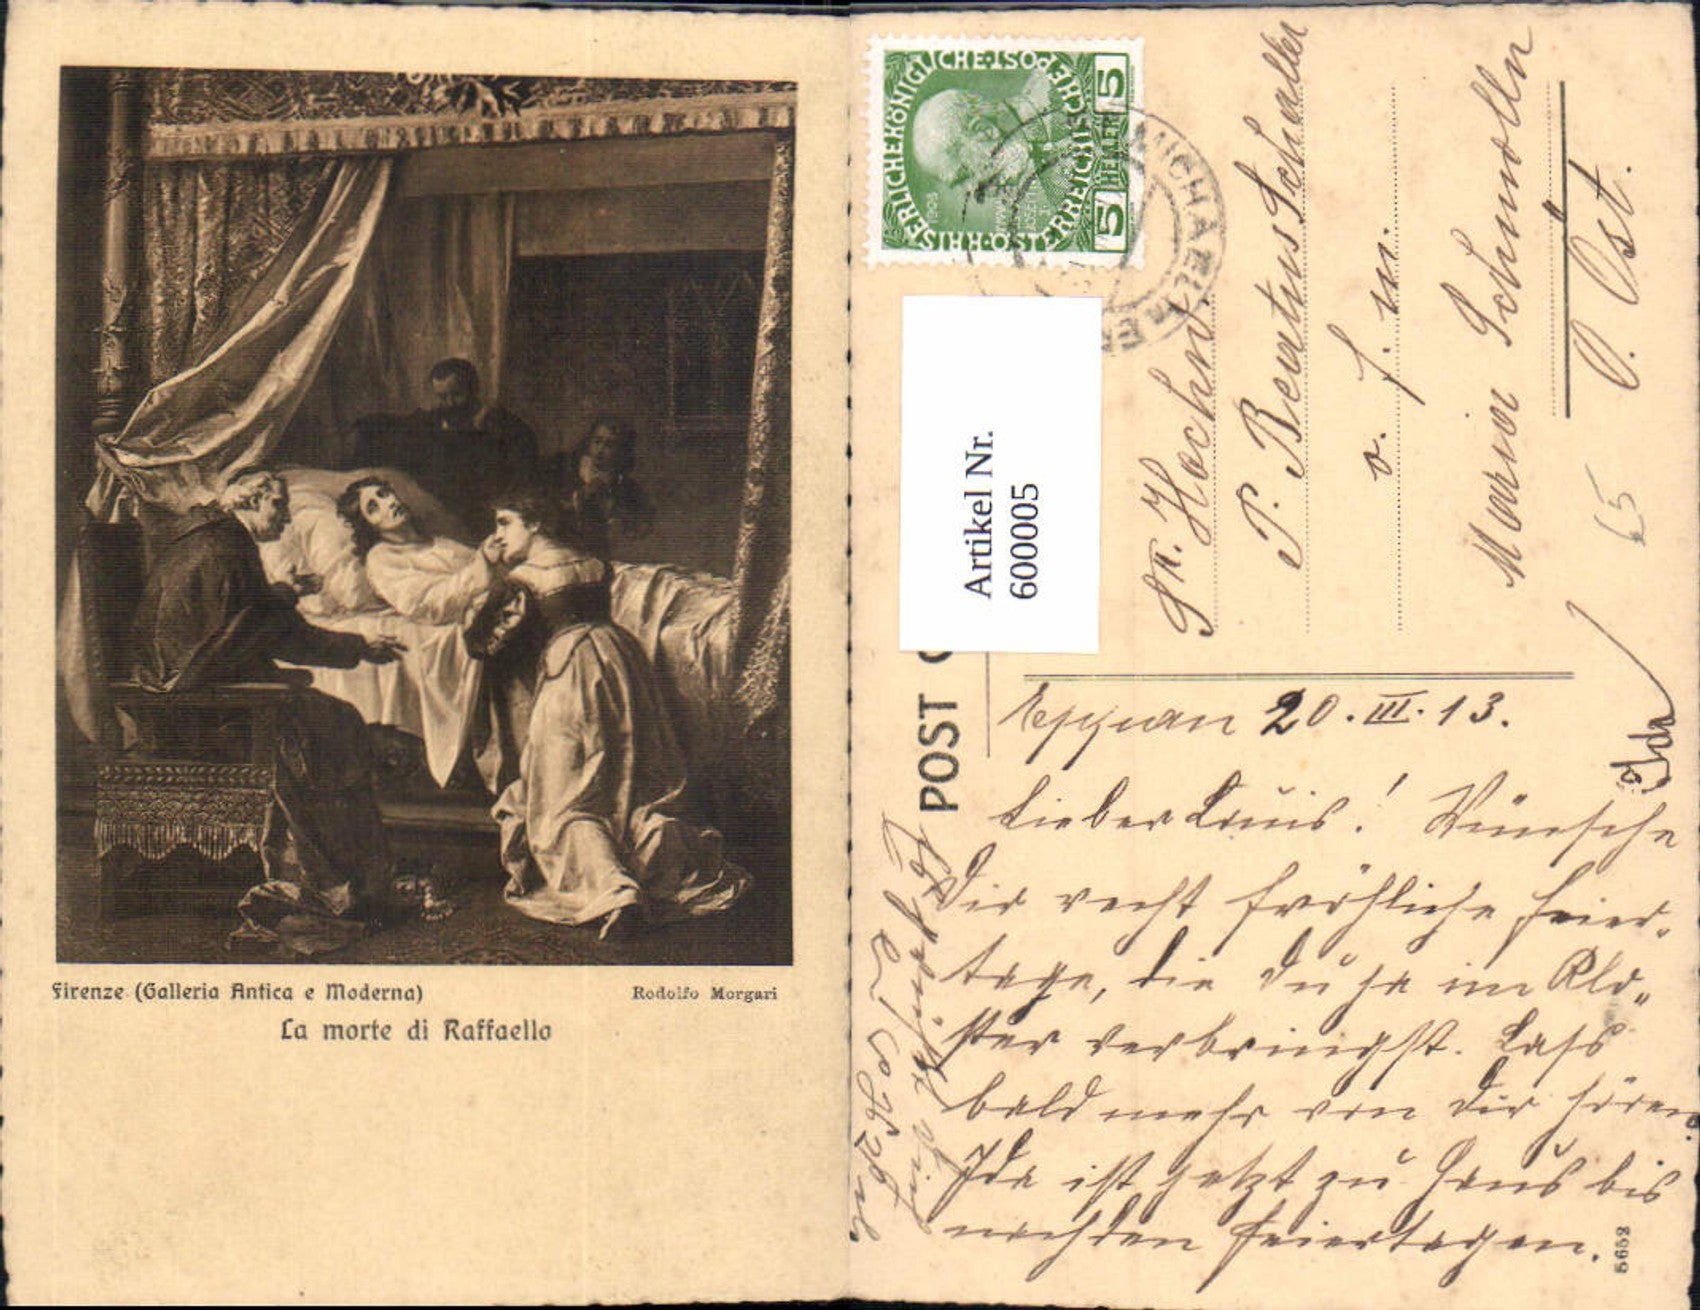 Firenze (Galleria Antica e Moderna)
Rodolfo Morgari
La morte di Raffaello
KAISERLICHE KÖNIGLICHE ÖSTERREICHISCHE POST
5 HELLER 5
1908
MICHAEL
Artikel Nr.
600005
POST C
Sr. Hochw.
P. Beatus Schaller
o. f. m.
Maria Schmolln
O. Öst.
65
Eppan 20. III. 13.
Lieber Luis! Wünsche
Dir recht fröhliche Feier-
tage, die Du ja im Klo-
ster verbringst. Lass
bald mehr von Dir hören.
Ida ist jetzt zu Haus bis
nach den Feiertagen.
Ida
5652